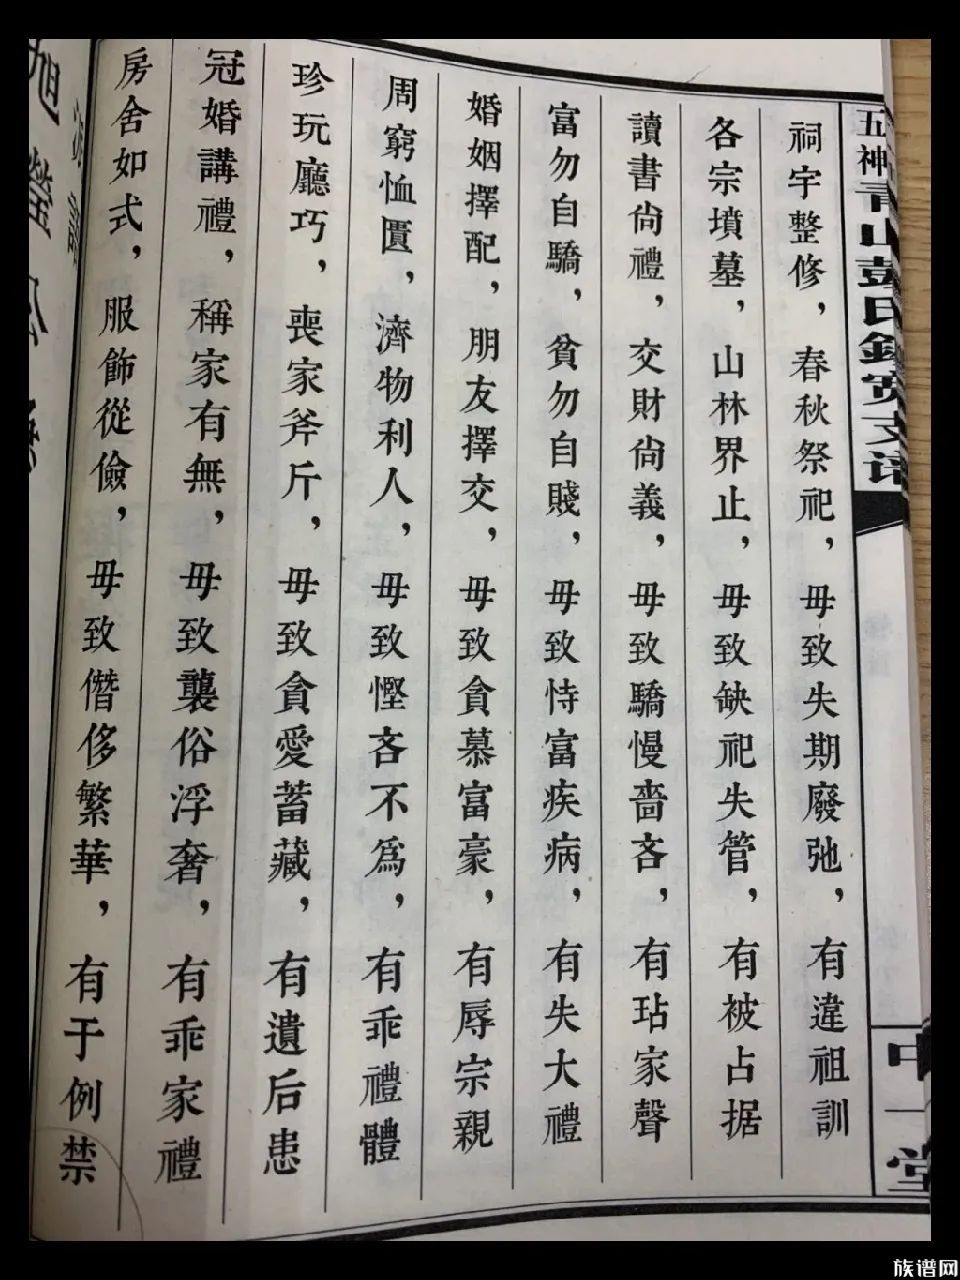 五神青山彭氏欽寅支谱
中一堂
祠宇整修，春秋祭祀，毋致失期廢弛，有違祖訓
各宗墳墓，山林界止，毋致缺祀失管，有被占据
讀書尙禮，交財尙義，毋致驕慢嗇吝，有玷家聲
富勿自驕，貧勿自賤，毋致恃富疾病，有失大禮
婚姻擇配，朋友擇交，毋致貪慕富豪，有辱宗親
周窮恤匱，濟物利人，毋致慳吝不爲，有乖禮體
珍玩廳巧，喪家斧斤，毋致貪愛蓄藏，有遺后患
冠婚講禮，稱家有無，毋致襲俗浮奢，有乖家禮
房舍如式，服飾從儉，毋致僭侈繁華，有于例禁
族谱网